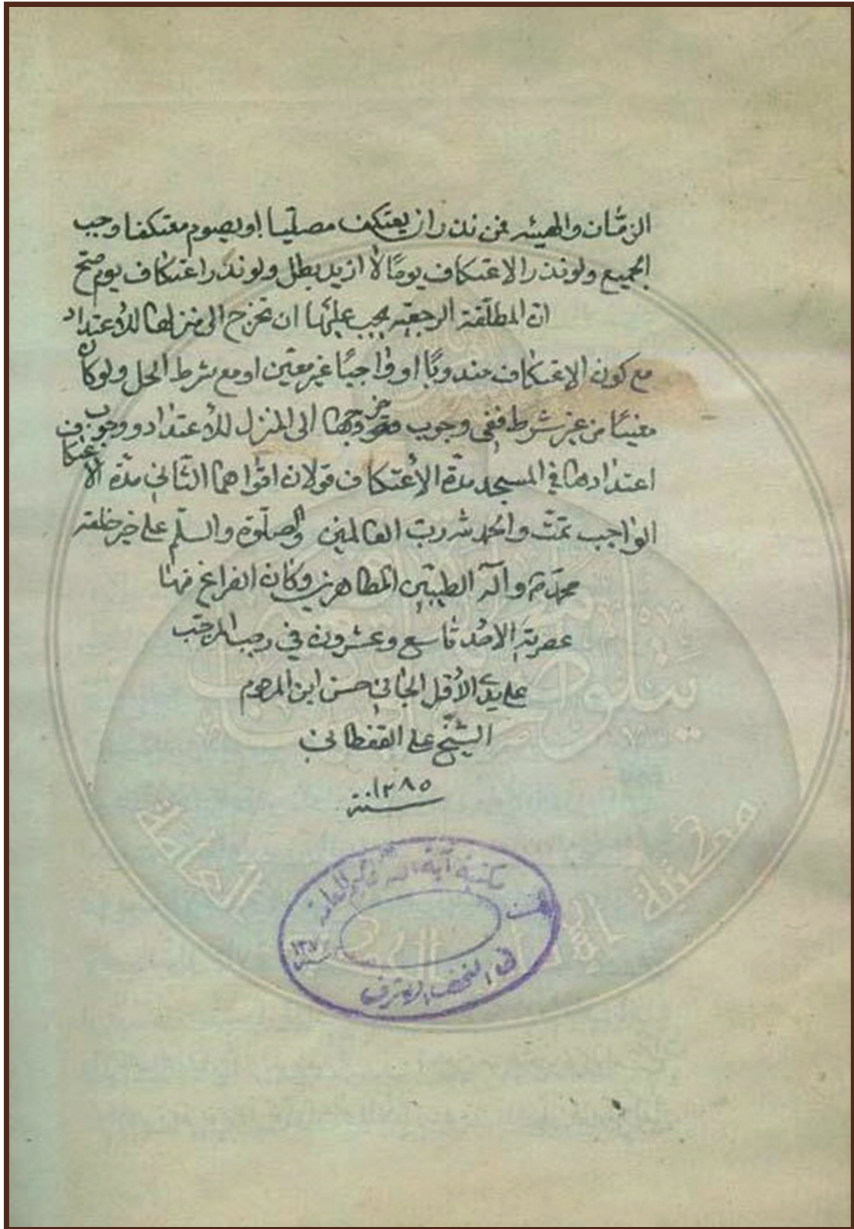 الزمان والهيئة فمن نذر ان يعتكف مصليا او يصوم معتكفا وجب
الجميع ولو نذر الاعتكاف يومًا لا ازيد بطل ولو نذر اعتكاف يوم صح
ان المطلقة الرجعية يجب عليها ان تخرج الى منزلها للاعتداد
مع كون الاعتكاف مندوبًا او واجبًا غير معين او مع شرط الحل ولو كان
معينًا من غير شرط ففي وجوب خروجها الى المنزل للاعتداد ووجوب
اعتدادها في المسجد مدة الاعتكاف قولان اقواهما الثاني مدة الاعتكاف
الواجب تمت والحمد لله رب العالمين والصلوة والسلم على خير خلقه
محمد وآله الطيبين الطاهرين وكان الفراغ منها
عصرية الاحد تاسع وعشرون في رجب المرجب
على يد الأقل الجاني حسن ابن المرحوم
الشيخ علي القفطاني
سنة ١٢٨٥
مكتبة آية الله الحكيم العامة
في النجف الاشرف